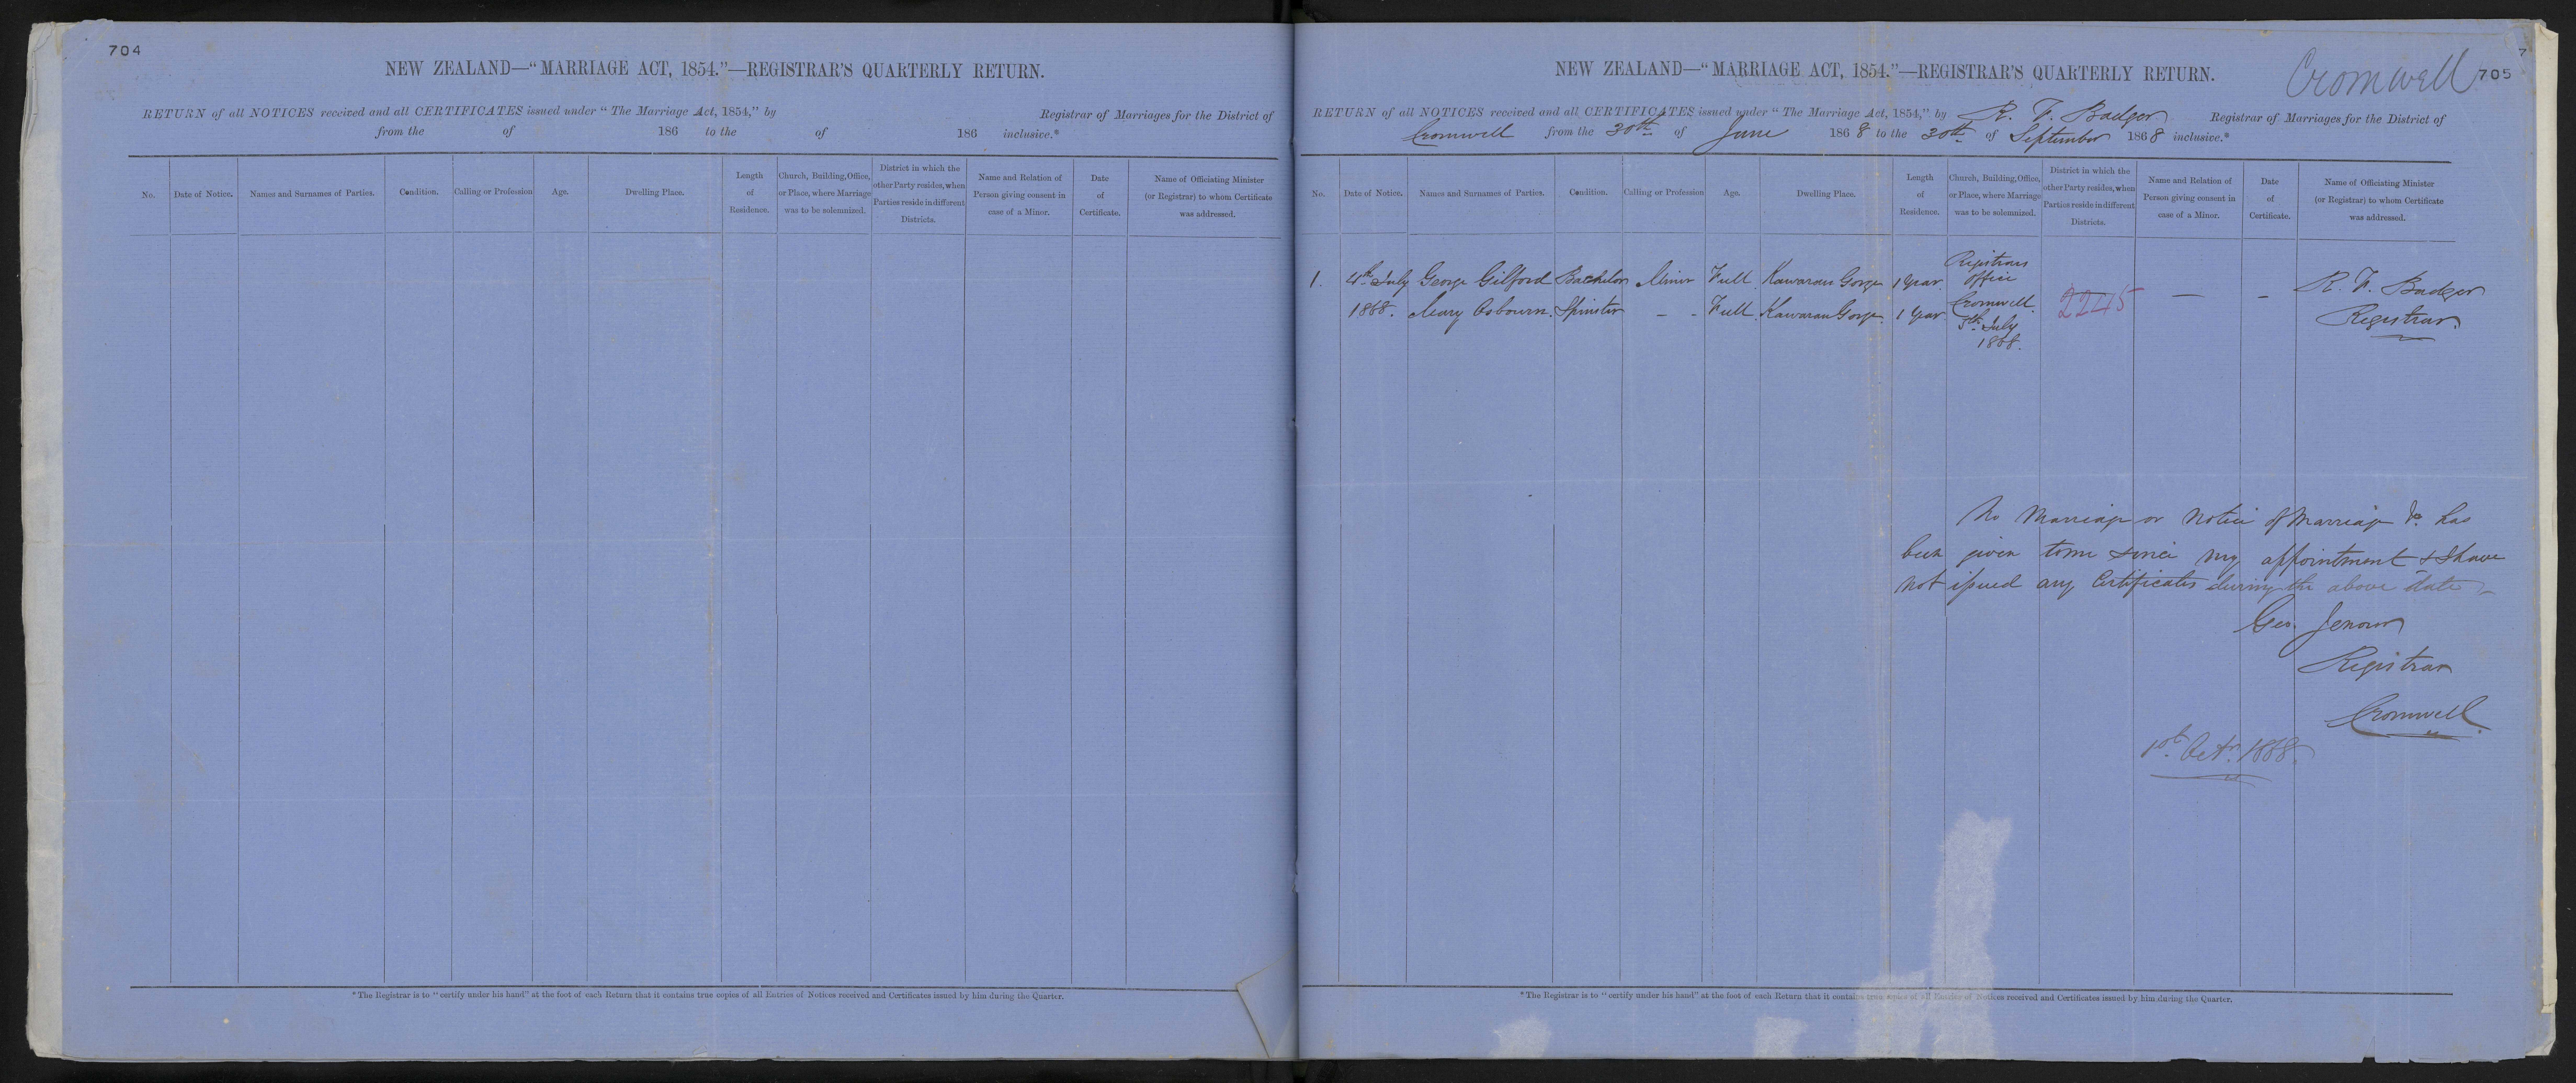 704
NEW ZEALAND—“MARRIAGE ACT, 1854.”—REGISTRAR'S QUARTERLY RETURN.
RETURN of all NOTICES received and all CERTIFICATES issued under “The Marriage Act, 1854,” by Registrar of Marriages for the District of
from the of 186 to the of 186 inclusive.*
No. Date of Notice. Names and Surnames of Parties. Condition. Calling or Profession Age. Dwelling Place. Length of Residence. Church, Building, Office, or Place, where Marriage was to be solemnized. District in which the other Party resides, when Parties reside in different Districts. Name and Relation of Person giving consent in case of a Minor. Date of Certificate. Name of Officiating Minister (or Registrar) to whom Certificate was addressed.
*The Registrar is to “certify under his hand” at the foot of each Return that it contains true copies of all Entries of Notices received and Certificates issued by him during the Quarter.
7
Cromwell 705
NEW ZEALAND—“MARRIAGE ACT, 1854.”—REGISTRAR'S QUARTERLY RETURN.
RETURN of all NOTICES received and all CERTIFICATES issued under “The Marriage Act, 1854,” by R. F. Badger Registrar of Marriages for the District of
Cromwell from the 30th of June 1868 to the 30th of September 1868 inclusive.*
No. Date of Notice. Names and Surnames of Parties. Condition. Calling or Profession Age. Dwelling Place. Length of Residence. Church, Building, Office, or Place, where Marriage was to be solemnized. District in which the other Party resides, when Parties reside in different Districts. Name and Relation of Person giving consent in case of a Minor. Date of Certificate. Name of Officiating Minister (or Registrar) to whom Certificate was addressed.
1. 4th July George Gilford Bachelor Miner Full Kawarau Gorge 1 Year. Registrars office — - R. F. Badger
1868. Mary Osbourn. Spinster - - Full Kawarau Gorge. 1 Year Cromwell. 2245 Registrar.
5th July
1868.
No Marriage or Notice of Marriage &c. has
been given to me since my appointment & I have
not issued any Certificates during the above date -
Geo. Jenour
Registrar
Cromwell.
1st Octr. 1868.
*The Registrar is to “certify under his hand” at the foot of each Return that it contains true copies of all Entries of Notices received and Certificates issued by him during the Quarter.